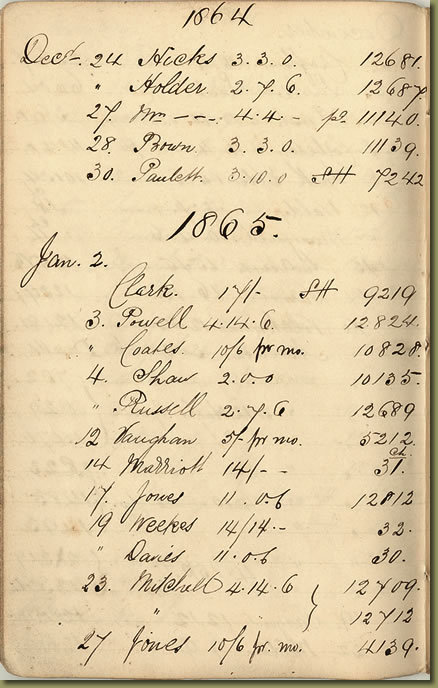 1864
Decr. 24 Hicks 3.3.0. 12681.
" Holder 2.7.6. 12687.
27. Mr --- 4.4- pd. 11140.
28. Bown 3.3.0. 11139.
30. Paulett. 3.10.0 SH 7242
1865.
Jan. 2.
Clark. 17/- SH 9219
3. Powell 4.14.6. 12.824.
" Coates 10/6 pr mo. 10828.
4. Shaw 2.0.0 10135.
" Russell 2.7.6 12689
12 Vaughan 5/- pr mo. 5212.
14 Marriott 14/-- ch. 31.
17. Jones 11.0.6 12812
19 Weekes 14/14.- 32.
" Davies 11.0.6 30.
23. Mitchell 4.14.6 12709.
" 12712
27 Jones 10/6 pr. mo. 4139.